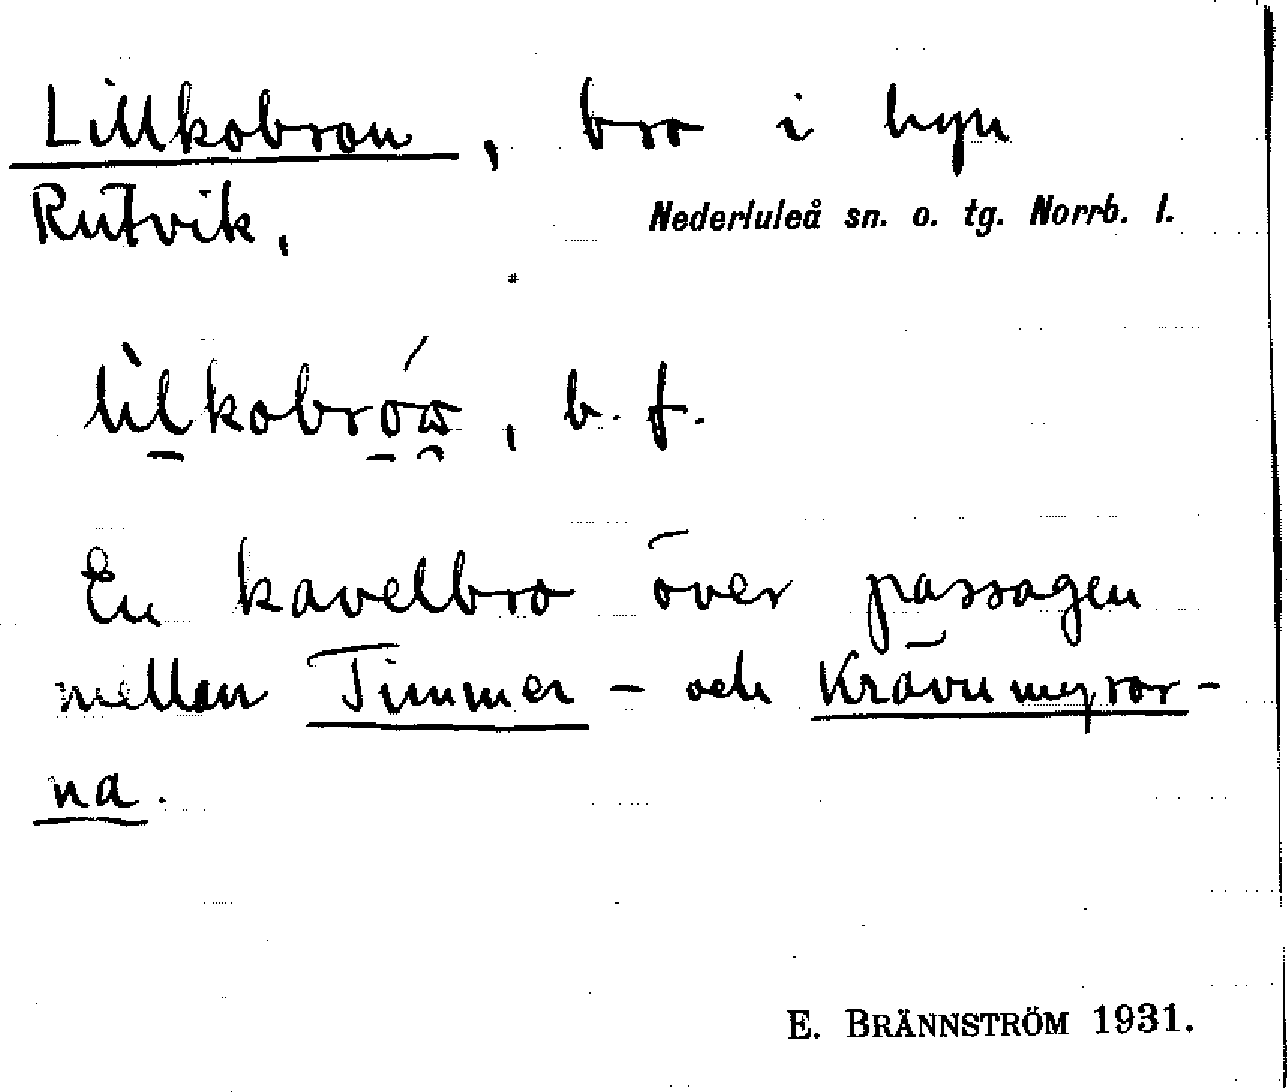 Lillkobron, bro i byn
Rutvik, Nederluleå sn. o. tg. Norrb. l.
lìlkobróa, b. f.
En kavelbro över passagen
mellan Timmer- och Krävumyror-
na.
E. BRÄNNSTRÖM 1931.